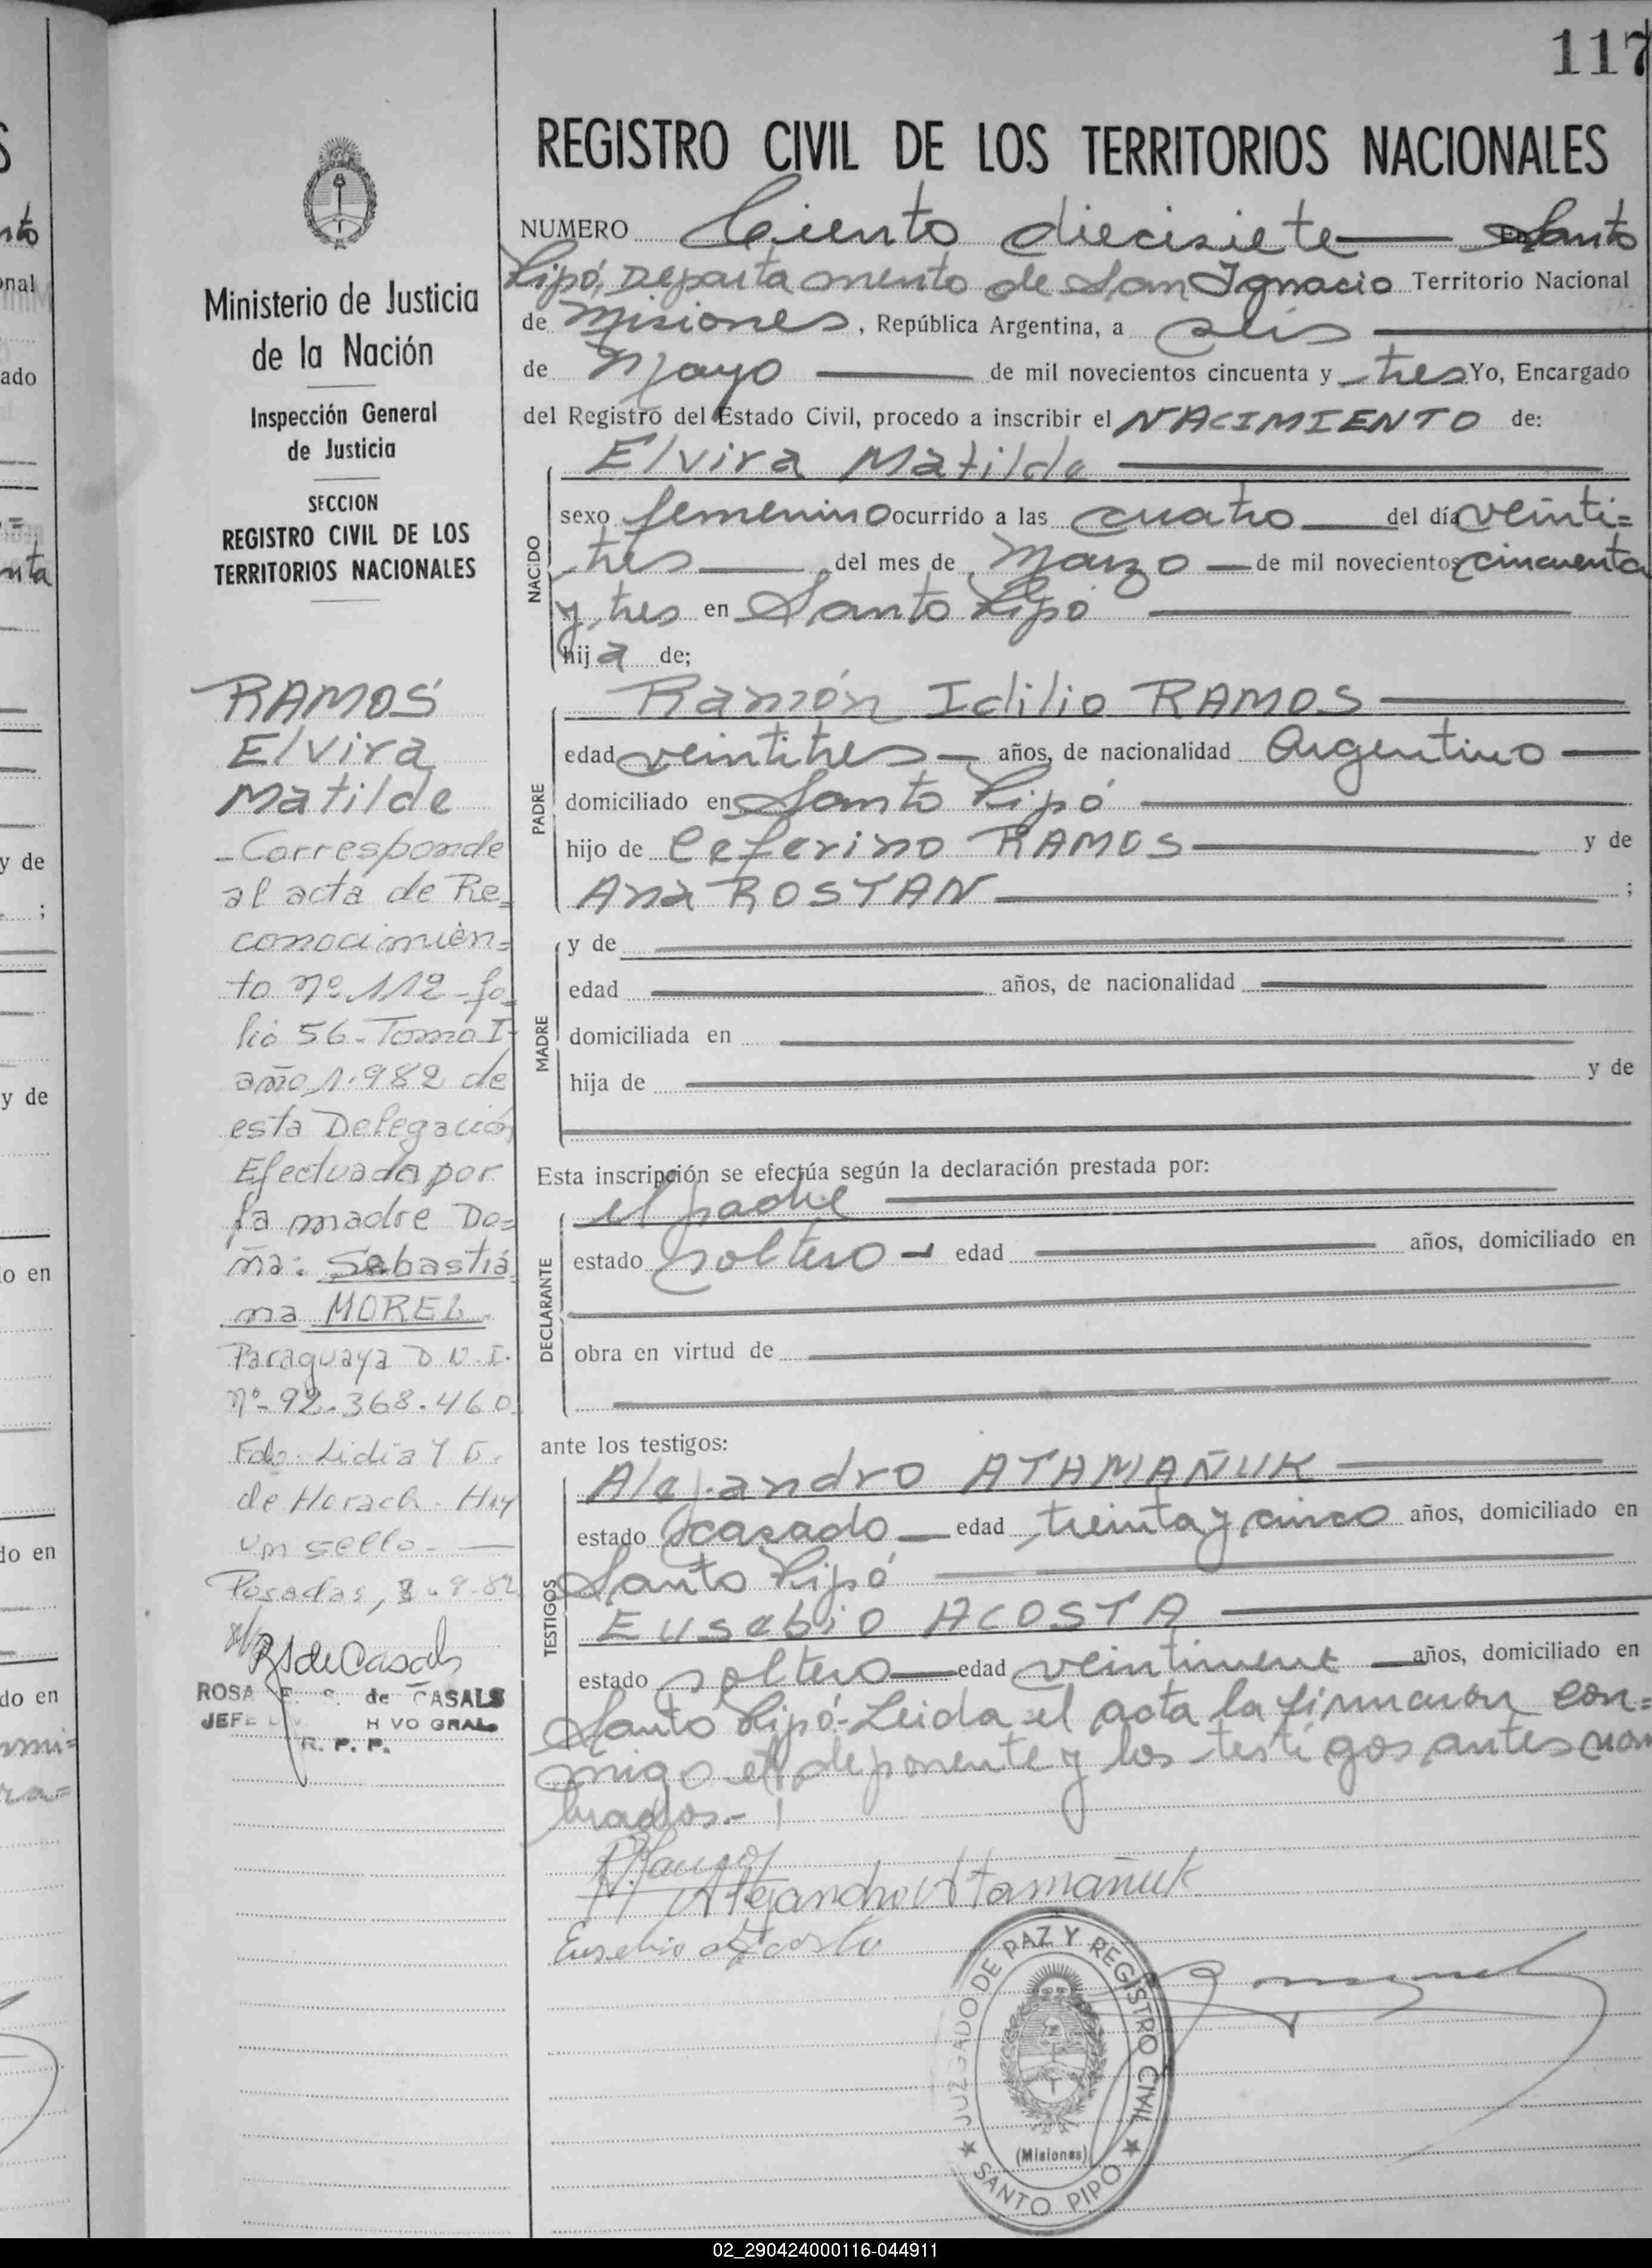 117
REGISTRO CIVIL DE LOS TERRITORIOS NACIONALES
NUMERO Ciento diecisiete En Santo
Pipó, Departamento de San Ignacio Territorio Nacional
de Misiones, República Argentina, a seis
de Mayo de mil novecientos cincuenta y tres Yo, Encargado
del Registro del Estado Civil, procedo a inscribir el NACIMIENTO de:
NACIDO
Elvira Matilde
sexo femenino ocurrido a las cuatro del día veinti=
tres del mes de Marzo de mil novecientos cincuenta
y tres en Santo Pipó
hija de;
PADRE
Ramón Idilio RAMOS
edad veintitres años, de nacionalidad Argentino
domiciliado en Santo Pipó
hijo de Ceferino RAMOS y de
Ana ROSTAN ;
MADRE
y de
edad años, de nacionalidad
domiciliada en
hija de y de
Esta inscripción se efectúa según la declaración prestada por:
DECLARANTE
el padre
estado soltero edad años, domiciliado en
obra en virtud de
ante los testigos:
TESTIGOS
Alejandro ATAMAÑUK
estado casado edad treinta y cinco años, domiciliado en
Santo Pipó
Eusebio ACOSTA
estado soltero edad años, domiciliado en
Santo Pipó.- Leida el acta la firmaron con=
migo el deponente y los testigos antes nom
brados.-
Alejandro Atamañuk
Eusebio Acosta
JUZGADO DE PAZ Y REGISTRO CIVIL
(Misiones)
SANTO PIPO
Ministerio de Justicia
de la Nación
Inspección General
de Justicia
SECCION
REGISTRO CIVIL DE LOS
TERRITORIOS NACIONALES
RAMOS
Elvira
Matilde
-Corresponde
al acta de Re=
conocimien=
to nº 112-fo-
lio 56-Tomo I-
año 1.982 de
esta Delegación
Efectuada por
la madre Do=
ña: Sebastia
na MOREL
Paraguaya D.N.I.
nº-92.368.460
Fdo. Lidia
de Horach. Hay
un sello.-
Posadas, 9.82
RSdeCasals
ROSA E. S. de CASALS
JEFE HVO GRAL.
R. P. P.
02_290424000116-044911